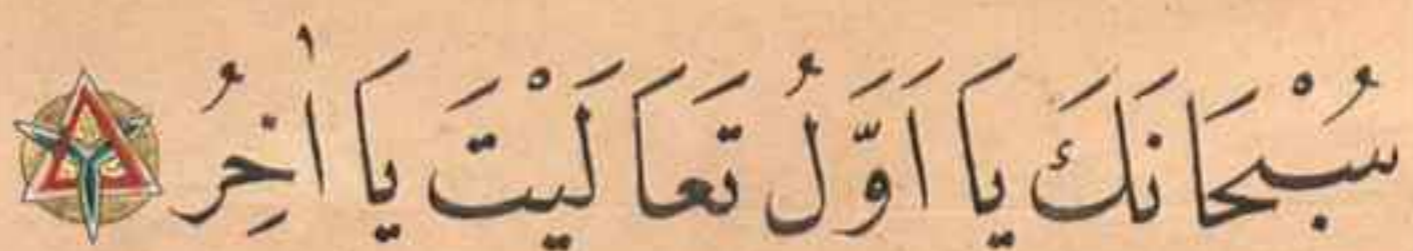 سُبْحَانَكَ يَا اَوَّلُ تَعَالَيْتَ يَا اٰخِرُ